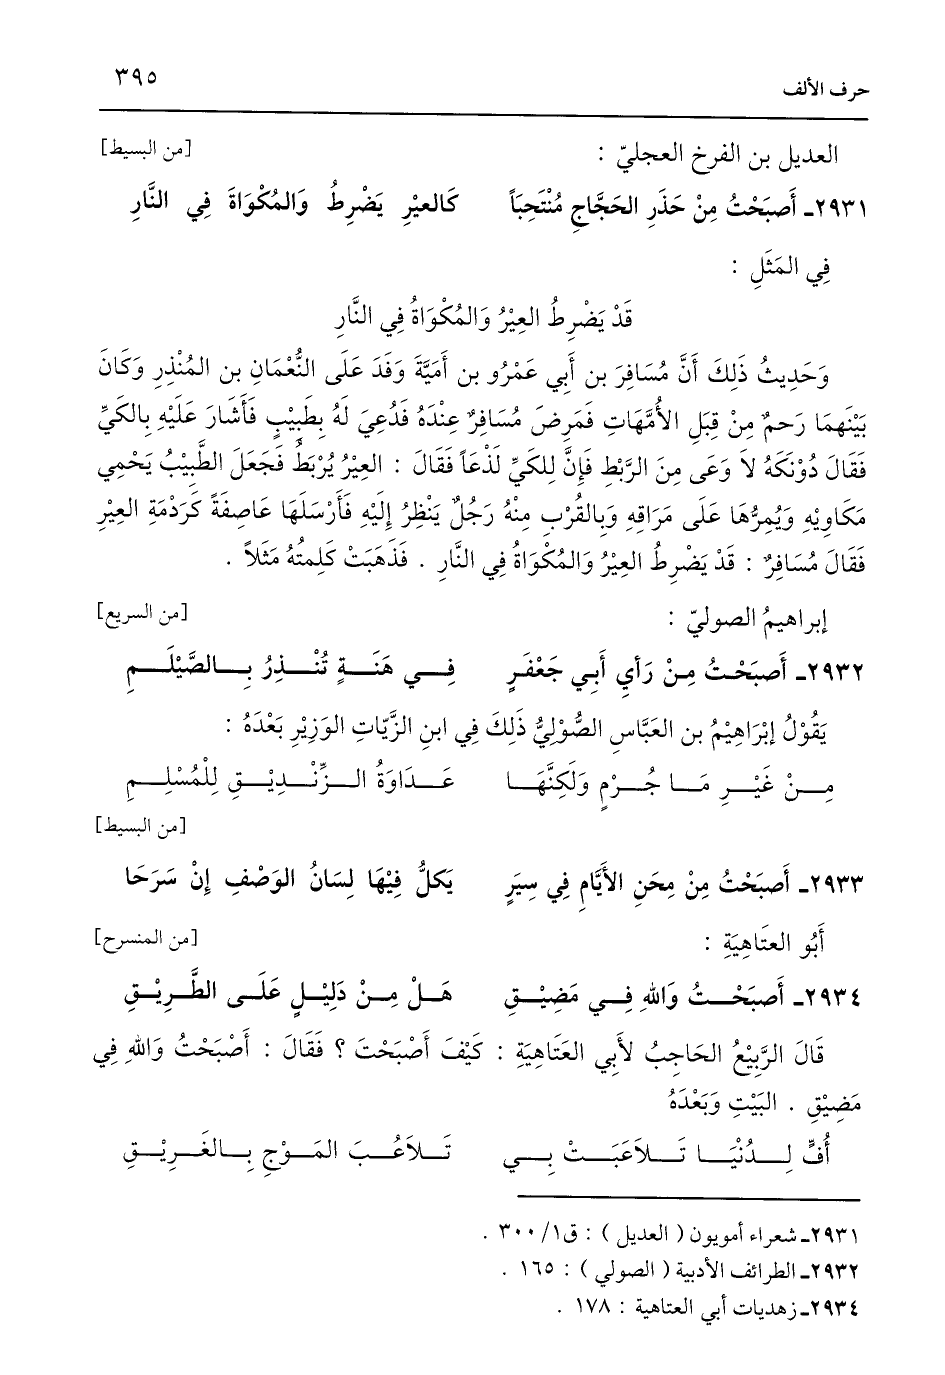 حرف الألف ٣٩٥
العديل بن الفرخ العجليّ : [من البسيط]
٢٩٣١ـ أَصبَحْتُ مِنْ حَذَرِ الحَجَّاجِ مُنْتَحِبَاً كَالعيْرِ يَضْرِطُ وَالمُكْوَاةَ فِي النَّارِ
فِي المَثَلِ :
قَدْ يَضْرِطُ العِيْرُ وَالمُكْوَاةُ فِي النَّارِ
وَحَدِيثُ ذَلِكَ أَنَّ مُسَافِرَ بن أَبي عَمْرُو بن أُمَيَّةَ وَفَدَ عَلَى النُّعْمَانِ بن المُنْذِرِ وَكَانَ
بَيْنَهِمَا رَحمٌ مِنْ قِبَلِ الأُمَّهَاتِ فَمَرِضَ مُسَافِرٌ عِنْدَهُ فَدُعِيَ لَهُ بِطَبِيْبٍ فَأَشَارَ عَلَيْهِ بِالكَيِّ
فَقَالَ دُوْنَكَهُ لاَ وَعَى مِنَ الرَّبْطِ فَإِنَّ لِلكَيِّ لَذْعَاً فَقَالَ : العِيْرُ يُرْبَطُ فَجَعَلَ الطَّبِيْبُ يَحْمِي
مَكَاوِيْهِ وَيُمِرُّهَا عَلَى مَرَاقِهِ وَبِالقُرْبِ مِنْهُ رَجُلٌ يَنْظرُ إِلَيْهِ فَأَرْسَلَهَا عَاصِفَةً كَرَدْمَةِ العِيْرِ
فَقَالَ مُسَافِرٌ : قَدْ يَضْرِطُ العِيْرُ وَالمُكْوَاةُ فِي النَّارِ . فَذَهَبَتْ كَلِمتُهُ مَثَلاً .
إبراهيمُ الصوليّ : [من السريع]
٢٩٣٢ـ أَصبَحْتُ مِنْ رَأيِ أَبي جَعْفَرٍ فِي هَنَةٍ تُنْذِرُ بِالصَّيْلَمِ
يَقُوْلُ إبْرَاهِيْمُ بن العَبَّاسِ الصُّوْلِيُّ ذَلِكَ فِي ابنِ الزَّيّاتِ الوَزِيْرِ بَعْدَهُ :
مِنْ غَيْرِ مَا جُرْمٍ وَلَكِنَّهَا عَدَاوَةُ الزِّنْدِيْقِ لِلْمُسْلِمِ
[من البسيط]
٢٩٣٣ـ أَصبَحْتُ مِنْ مِحَنِ الأَيَّامِ فِي سِيَرٍ يَكلُّ فِيْهَا لِسَانُ الوَصْفِ إِنْ سَرَحَا
أَبُو العتَاهِيَةِ : [من المنسرح]
٢٩٣٤ـ أَصبَحْتُ وَاللهِ فِي مَضِيْقِ هَلْ مِنْ دَلِيْلٍ عَلَى الطَّرِيْقِ
قَالَ الرَّبِيْعُ الحَاجِبُ لأَبي العَتَاهِيَةِ : كَيْفَ أَصْبَحْتَ ؟ فَقَالَ : أَصْبَحْتُ وَاللهِ فِي
مَضِيْقِ . البَيْتِ وَبَعْدَهُ
أُفٍّ لِدُنْيَا تَلاَعَبَتْ بِي تَلاَعُبَ المَوْجِ بِالغَرِيْقِ
٢٩٣١ـ شعراء أمويون ( العديل ) : ق١/ ٣٠٠ .
٢٩٣٢ـ الطرائف الأدبية ( الصولي ) : ١٦٥ .
٢٩٣٤ـ زهديات أبي العتاهية : ١٧٨ .